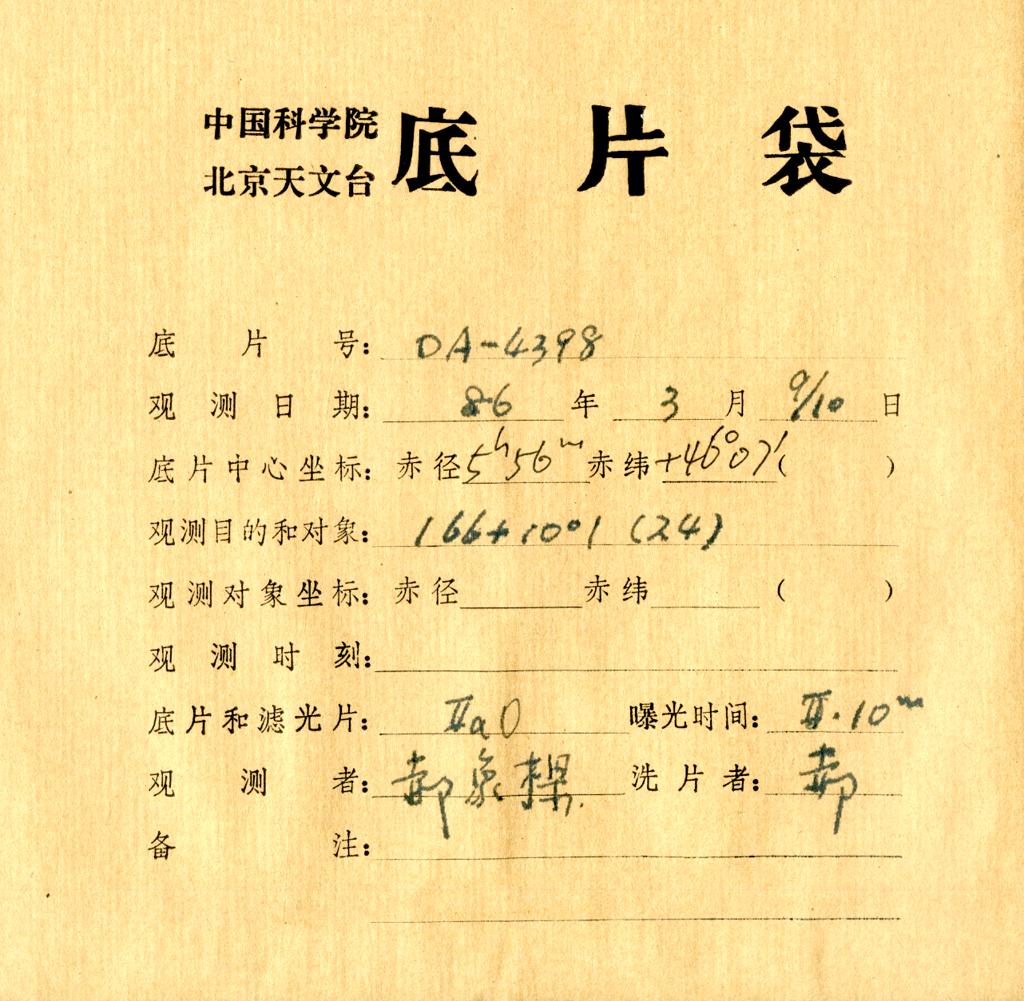 中国科学院
北京天文台
底片袋
底片号: DA-4398
观测日期: 86 年 3 月 9/10 日
底片中心坐标: 赤径 5h56m 赤纬 +46°07′ ( )
观测目的和对象: 166+10°1 (24)
观测对象坐标: 赤径 赤纬 ( )
观测时刻:
底片和滤光片: IIaO 曝光时间: II·10m
观测者: 郝象樑 洗片者: 郝
备注: